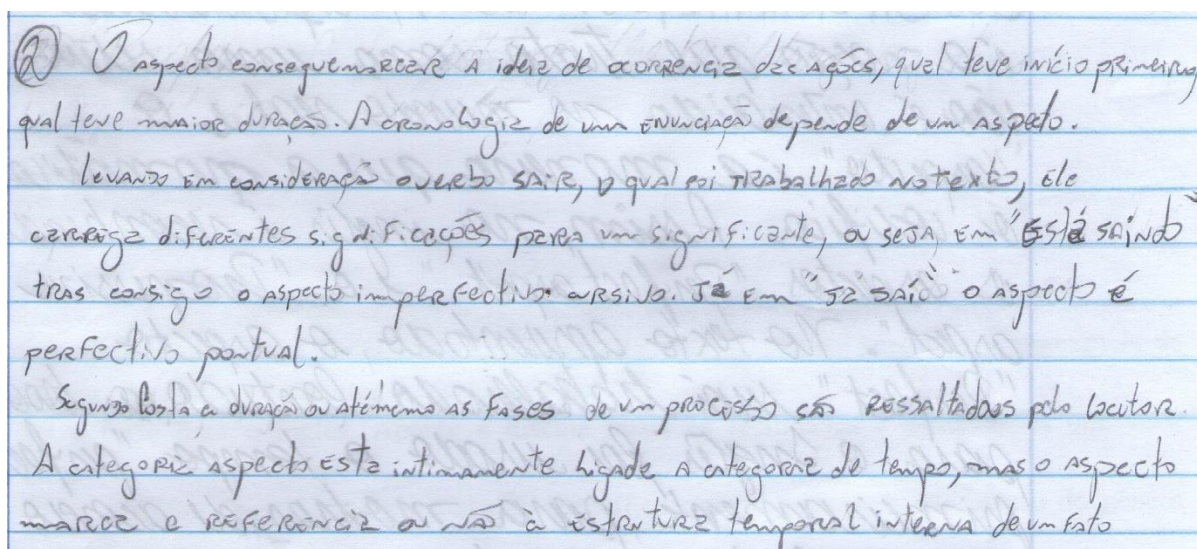 ② O aspecto consegue marcar a ideia de ocorrencia das ações, qual teve início primeiro,
qual teve maior duração. A cronologia de uma enunciação depende de um aspecto.
levando em consideração o verbo sair, o qual foi trabalhado no texto, ele
carrega diferentes significações para um significante, ou seja, em "está saindo"
tras consigo o aspecto imperfectivo cursivo. Já em "já saiu" o aspecto é
perfectivo pontual.
Segundo Costa a duração ou até mesmo as fases de um processo são ressaltados pelo locutor.
A categoria aspecto está intimamente ligada a categoria de tempo, mas o aspecto
marca a referência ou não à estrutura temporal interna de um fato